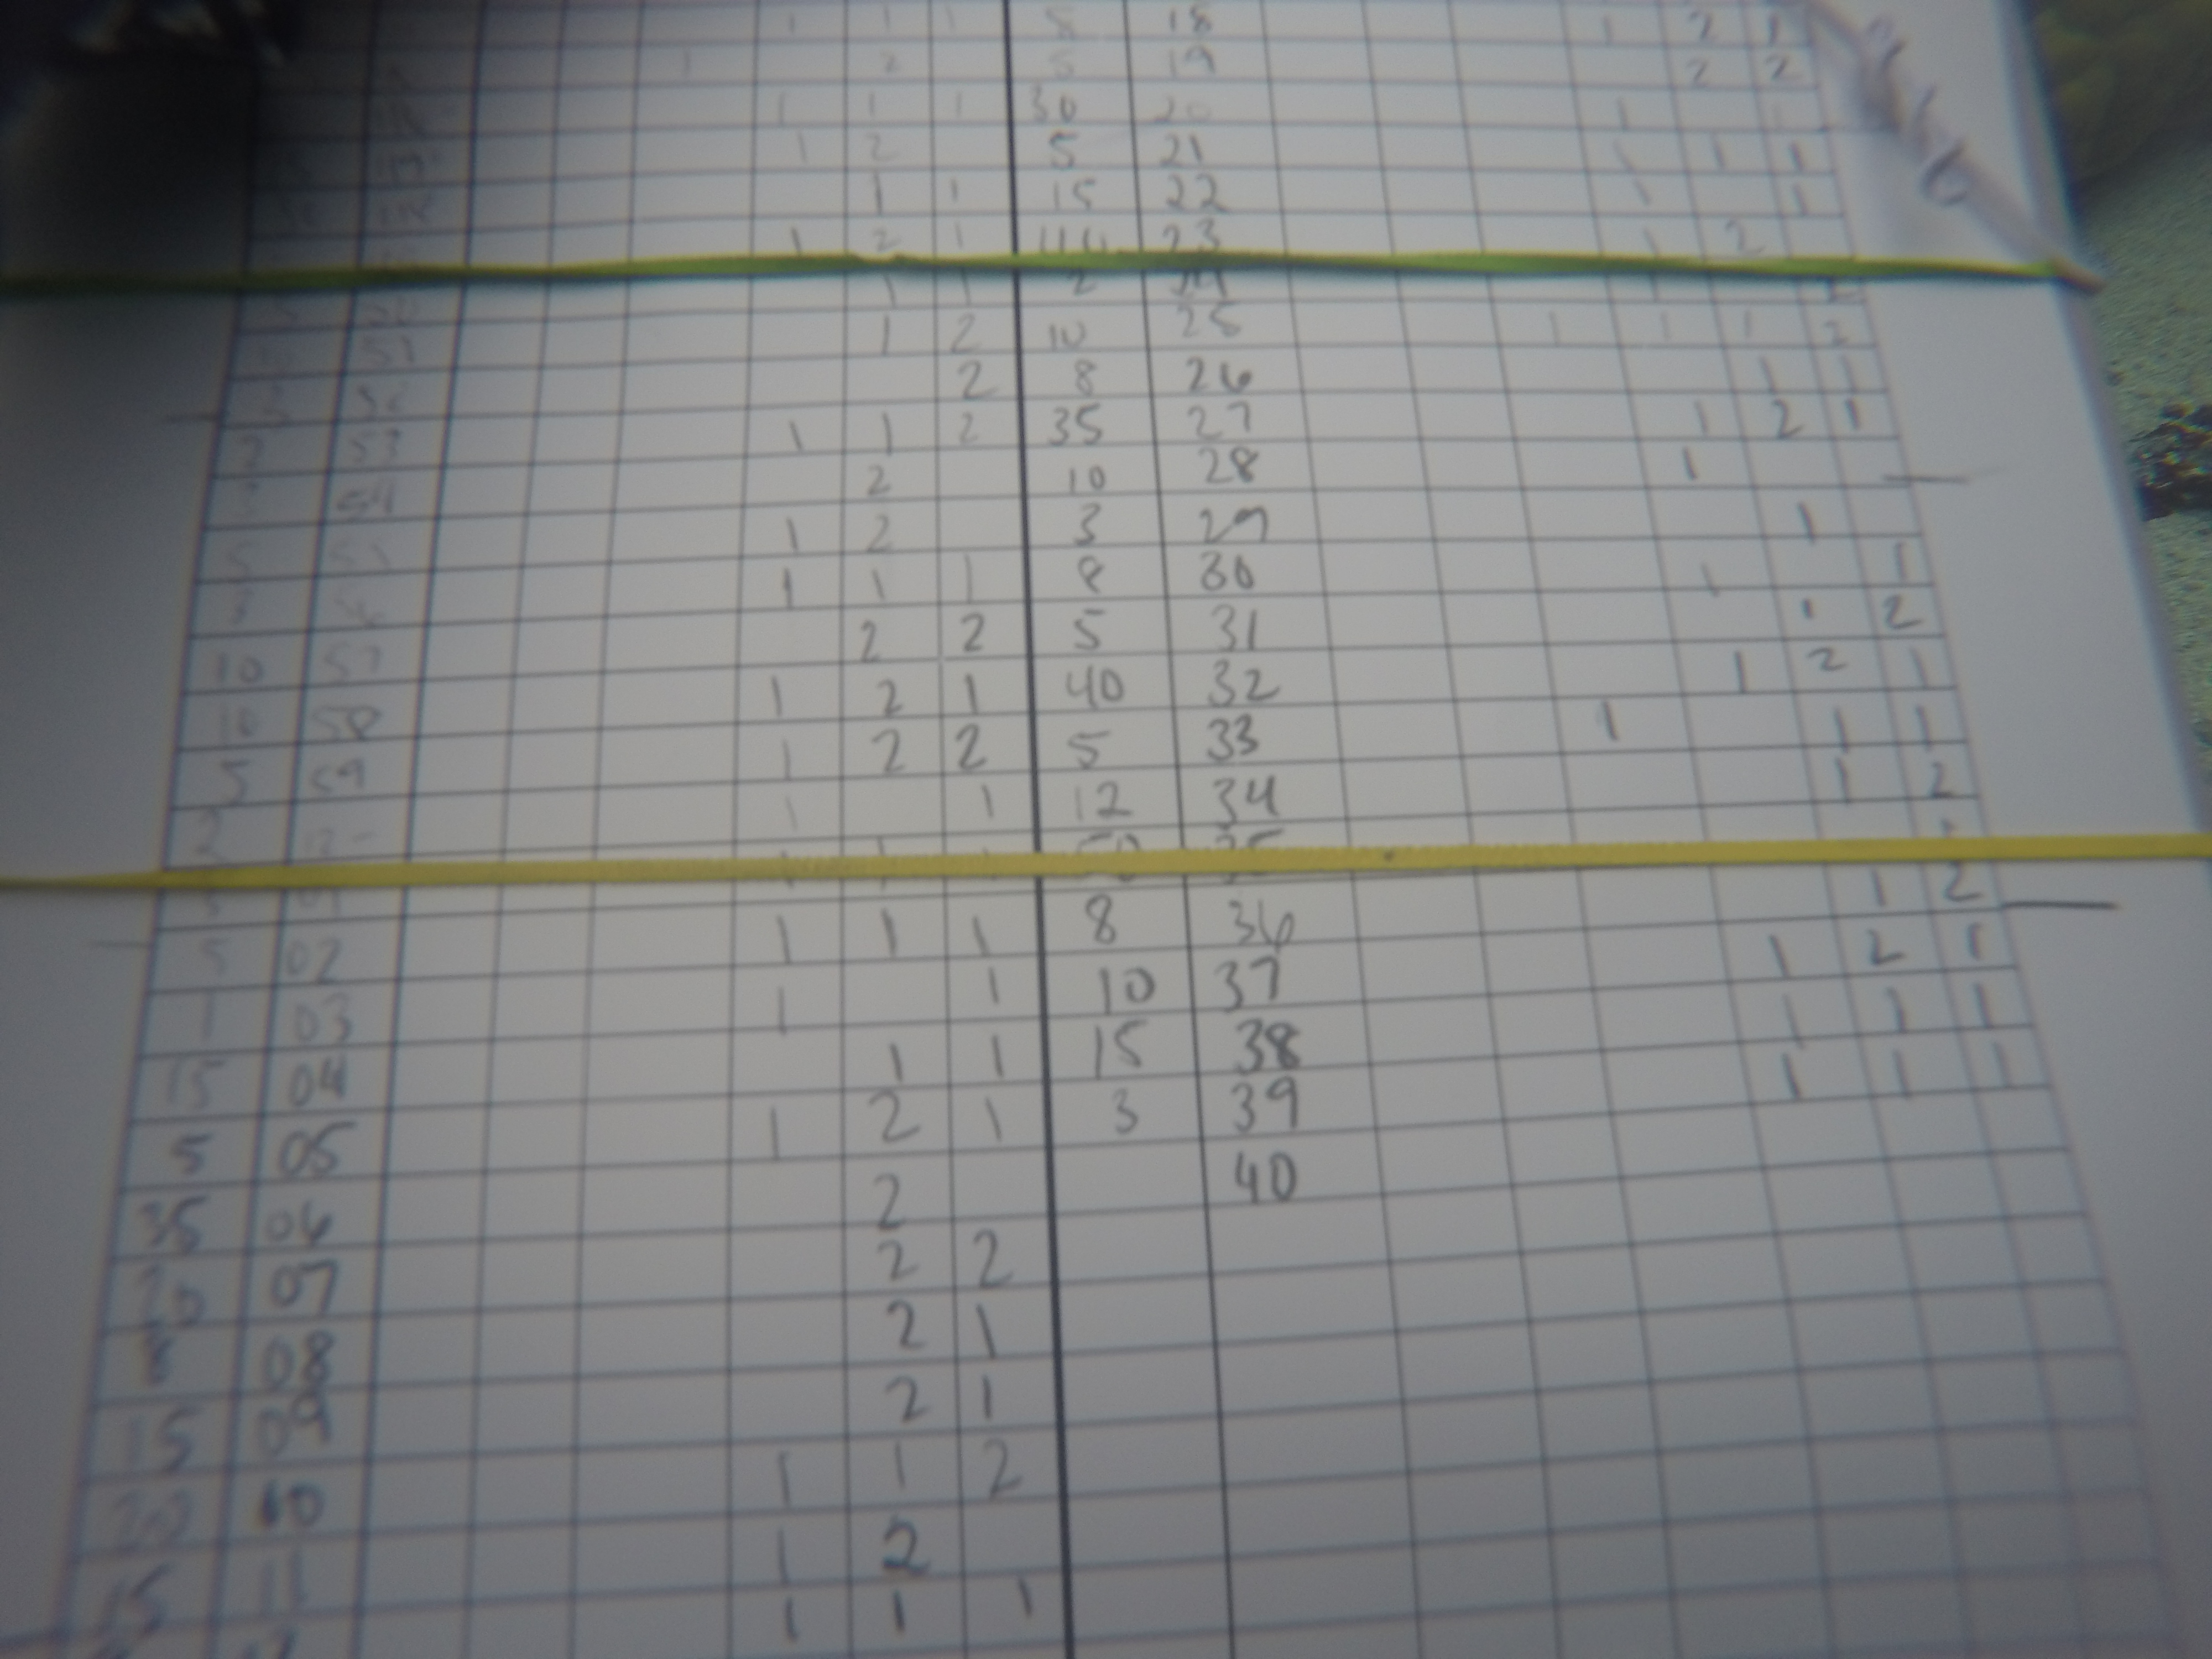 1 1 1 8 18 1 2 1
1 2 5 19 2 2
1 1 1 30 20 1 1
1 2 5 21 1 1 1
1 1 15 22 1 1
1 2 1 23 1 2
1 1 2
51 1 2 10 25 1 1 1 2
2 8 26 1 1
2 53 1 1 2 35 27 1 2 1
54 2 10 28 1
1 2 3 29 1
1 1 1 8 30 1 1
10 57 2 2 5 31 1 2
10 58 1 2 1 40 32 1 2 1
5 59 1 2 2 5 33 1 1 1
2 1 1 12 34 1 2
5 02 1 1 1 8 36 1 2
1 03 1 1 10 37 1 2 1
15 04 1 1 15 38 1 1 1
5 05 1 2 1 3 39 1 1 1
35 06 2 40
20 07 2 2
08 2 1
15 09 2 1
20 10 1 1 2
15 11 1 2
1 1 1